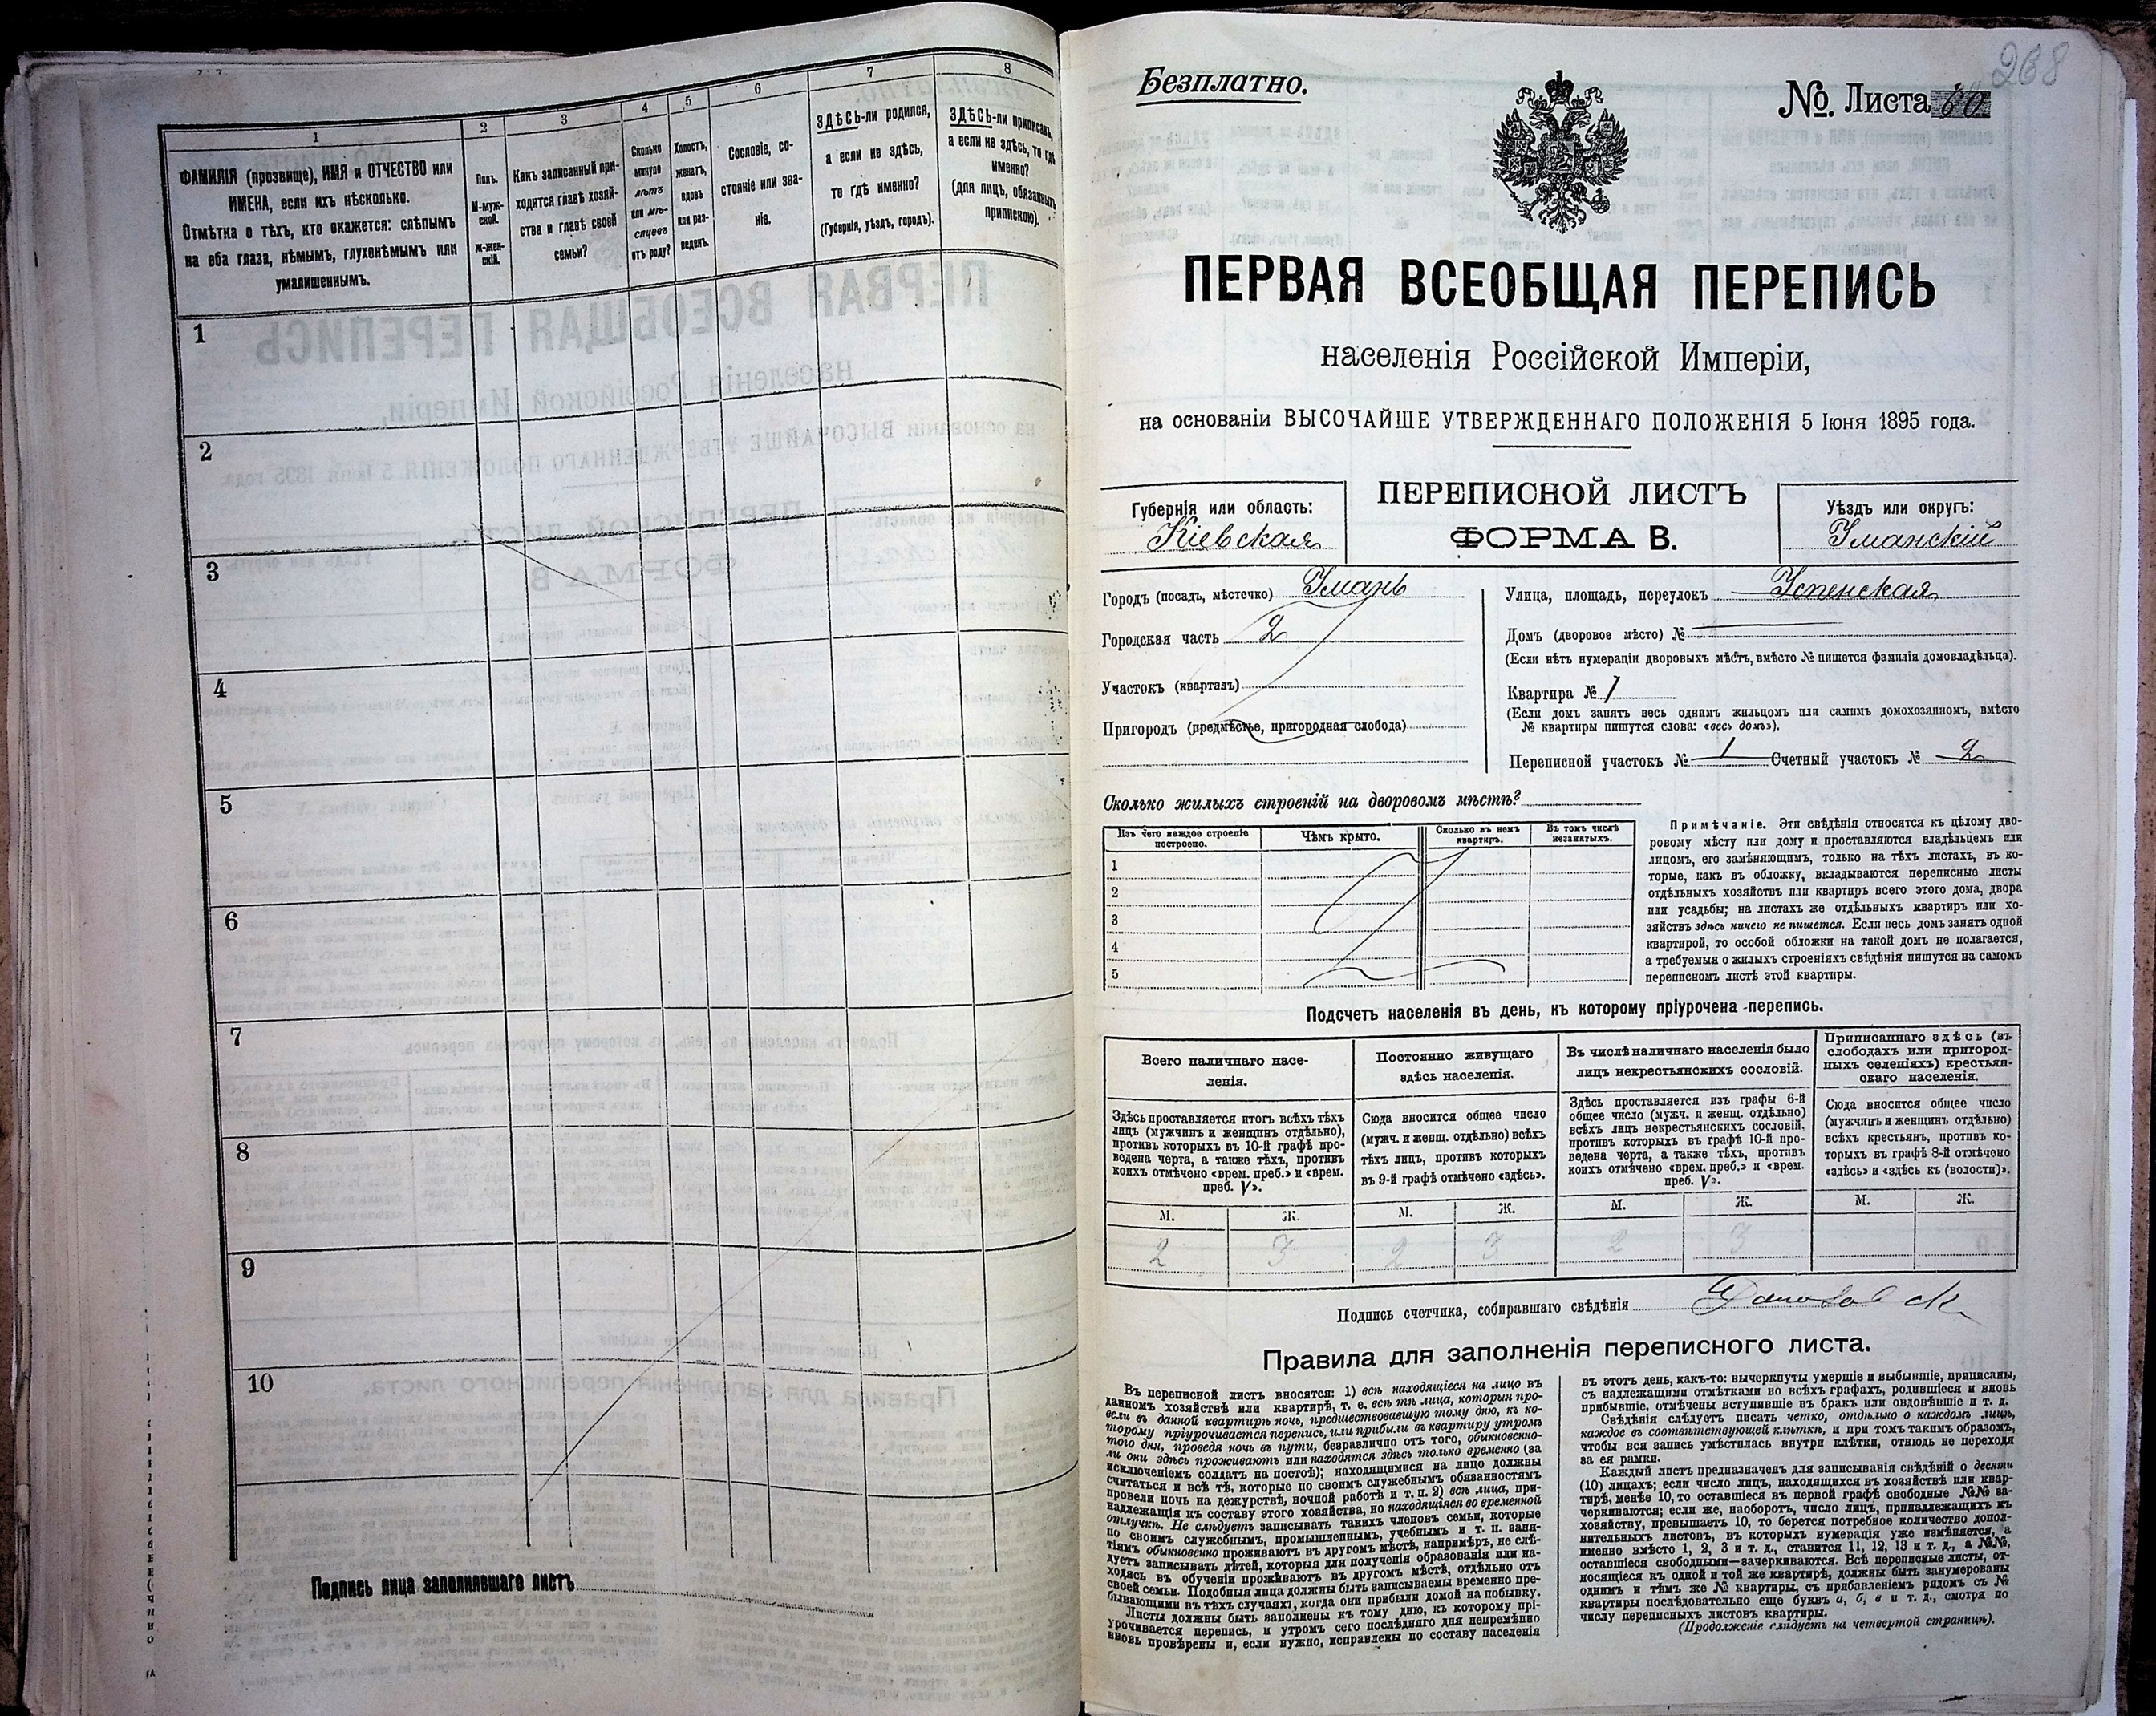 1
2
3
4
5
6
7
8
ФАМИЛІЯ (прозвище), ИМЯ и ОТЧЕСТВО или
ИМЕНА, если ихъ нѣсколько.
Отмѣтка о тѣхъ, кто окажется: слѣпымъ
на оба глаза, нѣмымъ, глухонѣмымъ или
умалишеннымъ.
Полъ.
М-муж-
ской.
Ж-жен-
скій.
Какъ записанный при-
ходится главѣ хозяй-
ства и главѣ своей
семьи?
Сколько
минуло
лѣтъ
или мѣ-
сяцевъ
отъ роду?
Холостъ,
женатъ,
вдовъ
или раз-
веденъ.
Сословіе, со-
стояніе или зва-
ніе.
ЗДѢСЬ-ли родился,
а если не здѣсь,
то гдѣ именно?
(Губернія, уѣздъ, городъ).
ЗДѢСЬ-ли приписанъ,
а если не здѣсь, то гдѣ
именно?
(для лицъ, обязанныхъ
припискою).
1
2
3
4
5
6
7
8
9
10
Подпись лица заполнявшаго листъ
268
Безплатно.
№. Листа 60
ПЕРВАЯ ВСЕОБЩАЯ ПЕРЕПИСЬ
населенія Россійской Имперіи,
на основаніи ВЫСОЧАЙШЕ УТВЕРЖДЕННАГО ПОЛОЖЕНІЯ 5 Іюня 1895 года.
Губернія или область:
Кіевская
ПЕРЕПИСНОЙ ЛИСТЪ
ФОРМА В.
Уѣздъ или округъ:
Уманскій
Городъ (посадъ, мѣстечко) Умань
Городская часть 2
Участокъ (кварталъ)
Пригородъ (предмѣстье, пригородная слобода)
Улица, площадь, переулокъ Успенская
Домъ (дворовое мѣсто) №
(Если нѣтъ нумераціи дворовыхъ мѣстъ, вмѣсто № пишется фамилія домовладѣльца).
Квартира № 1
(Если домъ занятъ весь однимъ жильцомъ или самимъ домохозяиномъ, вмѣсто
№ квартиры пишутся слова: «весь домъ»).
Переписной участокъ № 1 Счетный участокъ № 2
Сколько жилыхъ строеній на дворовомъ мѣстѣ?
Изъ чего каждое строеніе
построено.
Чѣмъ крыто.
Сколько въ немъ
квартиръ.
Въ томъ числѣ
незанятыхъ.
1
2
3
4
5
Примѣчаніе. Эти свѣдѣнія относятся къ цѣлому дво-
ровому мѣсту или дому и проставляются владѣльцемъ или
лицомъ, его замѣняющимъ, только на тѣхъ листахъ, въ ко-
торые, какъ въ обложку, вкладываются переписные листы
отдѣльныхъ хозяйствъ или квартиръ всего этого дома, двора
или усадьбы; на листахъ же отдѣльныхъ квартиръ или хо-
зяйствъ здѣсь ничего не пишется. Если весь домъ занятъ одной
квартирой, то особой обложки на такой домъ не полагается,
а требуемыя о жилыхъ строеніяхъ свѣдѣнія пишутся на самомъ
переписномъ листѣ этой квартиры.
Подсчетъ населенія въ день, къ которому пріурочена перепись.
Всего наличнаго насе-
ленія.
Постоянно живущаго
здѣсь населенія.
Въ числѣ наличнаго населенія было
лицъ некрестьянскихъ сословій.
Приписаннаго здѣсь (въ
слободахъ или пригород-
ныхъ селеніяхъ) крестьян-
скаго населенія.
Здѣсь проставляется итогъ всѣхъ тѣхъ
лицъ (мужчинъ и женщинъ отдѣльно),
противъ которыхъ въ 10-й графѣ про-
ведена черта, а также тѣхъ, противъ
коихъ отмѣчено «врем. преб.» и «врем.
преб. V».
Сюда вносится общее число
(мужч. и женщ. отдѣльно) всѣхъ
тѣхъ лицъ, противъ которыхъ
въ 9-й графѣ отмѣчено «здѣсь».
Здѣсь проставляется изъ графы 6-й
общее число (мужч. и женщ. отдѣльно)
всѣхъ лицъ некрестьянскихъ сословій,
противъ которыхъ въ графѣ 10-й про-
ведена черта, а также тѣхъ, противъ
коихъ отмѣчено «врем. преб.» и «врем.
преб. V».
Сюда вносится общее число
(мужчинъ и женщинъ отдѣльно)
всѣхъ крестьянъ, противъ ко-
торыхъ въ графѣ 8-й отмѣчено
«здѣсь» и «здѣсь къ (волости)».
М. Ж. М. Ж. М. Ж. М. Ж.
2 3 2 3 2 3
Подпись счетчика, собиравшаго свѣдѣнія
Правила для заполненія переписного листа.
Въ переписной листъ вносятся: 1) всѣ находящіеся на лицо въ
данномъ хозяйствѣ или квартирѣ, т. е. всѣ тѣ лица, которыя про-
вели въ данной квартирѣ ночь, предшествовавшую тому дню, къ ко-
торому пріурочивается перепись, или прибыли въ квартиру утромъ
того дня, проведя ночь въ пути, безразлично отъ того, обыкновенно-
ли они здѣсь проживаютъ или находятся здѣсь только временно (за
исключеніемъ солдатъ на постоѣ); находящимися на лицо должны
считаться и всѣ тѣ, которые по своимъ служебнымъ обязанностямъ
провели ночь на дежурствѣ, ночной работѣ и т. п. 2) всѣ лица, при-
надлежащія къ составу этого хозяйства, но находящіяся во временной
отлучкѣ. Не слѣдуетъ записывать такихъ членовъ семьи, которые
по своимъ служебнымъ, промышленнымъ, учебнымъ и т. п. заня-
тіямъ обыкновенно проживаютъ въ другомъ мѣстѣ, напримѣръ, не слѣ-
дуетъ записывать дѣтей, которыя для полученія образованія или на-
ходясь въ обученіи проживаютъ въ другомъ мѣстѣ, отдѣльно отъ
своей семьи. Подобныя лица должны быть записываемы временно пре-
бывающими въ тѣхъ случаяхъ, когда они прибыли домой на побывку.
Листы должны быть заполнены къ тому дню, къ которому прі-
урочивается перепись, и утромъ сего послѣдняго дня непремѣнно
вновь провѣрены и, если нужно, исправлены по составу населенія
въ этотъ день, какъ-то: вычеркнуты умершіе и выбывшіе, приписаны,
съ надлежащими отмѣтками во всѣхъ графахъ, родившіеся и вновь
прибывшіе, отмѣчены вступившіе въ бракъ или овдовѣвшіе и т. д.
Свѣдѣнія слѣдуетъ писать четко, отдѣльно о каждомъ лицѣ,
каждое въ соотвѣтствующей клѣткѣ, и при томъ такимъ образомъ,
чтобы вся запись умѣстилась внутри клѣтки, отнюдь не переходя
за ея рамки.
Каждый листъ предназначенъ для записыванія свѣдѣній о десяти
(10) лицахъ; если число лицъ, находящихся въ хозяйствѣ или квар-
тирѣ, менѣе 10, то оставшіеся въ первой графѣ свободные №№ за-
черкиваются; если же, наоборотъ, число лицъ, принадлежащихъ къ
хозяйству, превышаетъ 10, то берется потребное количество допол-
нительныхъ листовъ, въ которыхъ нумерація уже измѣняется, а
именно вмѣсто 1, 2, 3 и т. д., ставится 11, 12, 13 и т. д., а №№,
оставшіеся свободными—зачеркиваются. Всѣ переписные листы, от-
носящіеся къ одной и той же квартирѣ, должны быть занумерованы
однимъ и тѣмъ же № квартиры, съ прибавленіемъ рядомъ съ №
квартиры послѣдовательно еще буквъ а, б, в и т. д., смотря по
числу переписныхъ листовъ квартиры.
(Продолженіе слѣдуетъ на четвертой страницѣ).